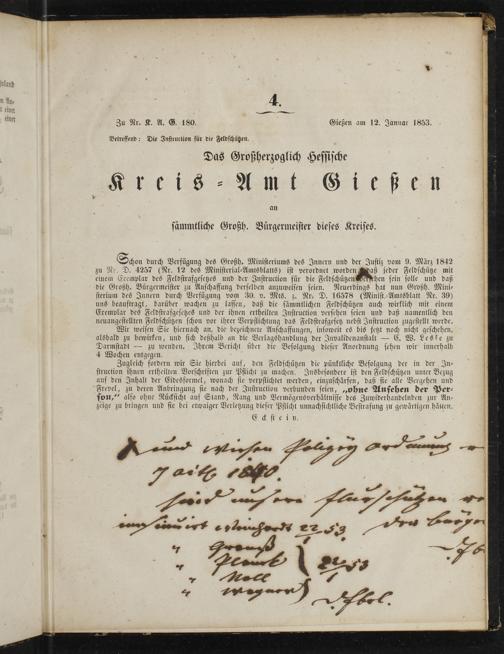 4.
Zu Nr. K. A. G. 180. Gießen am 12. Januar 1853.
Betreffend: Die Instruction für die Feldschützen.
Das Großherzoglich Hessische
Kreis-Amt Gießen
an
sämmtliche Großh. Bürgermeister dieses Kreises.
Schon durch Verfügung des Großh. Ministeriums des Innern und der Justiz vom 9. März 1842
zu Nr. D. 4257 (Nr. 12 des Ministerial-Amtsblatts) ist verordnet worden, daß jeder Feldschütze mit
einem Exemplar des Feldstrafgesetzes und der Instruction für die Feldschützen versehen sein solle und daß
die Großh. Bürgermeister zu Anschaffung derselben anzuweisen seien. Neuerdings hat nun Großh. Mini-
sterium des Innern durch Verfügung vom 30. v. Mts. z. Nr. D. 16578 (Minist.-Amtsblatt Nr. 39)
uns beauftragt, darüber wachen zu lassen, daß die sämmtlichen Feldschützen auch wirklich mit einem
Exemplar des Feldstrafgesetzes und der ihnen ertheilten Instruction versehen seien und daß namentlich den
neuangestellten Feldschützen schon vor ihrer Verpflichtung das Feldstrafgesetz nebst Instruction zugestellt werde.
Wir weisen Sie hiernach an, die bezeichnete Anschaffungen, insoweit es bis jetzt noch nicht geschehen,
alsbald zu bewirken, und sich deßhalb an die Verlagshandlung der Invalidenanstalt — C. W. Leske zu
Darmstadt — zu wenden. Ihrem Bericht über die Befolgung dieser Anordnung sehen wir innerhalb
4 Wochen entgegen.
Zugleich fordern wir Sie hierbei auf, den Feldschützen die pünktliche Befolgung der in der In-
struction ihnen ertheilten Vorschriften zur Pflicht zu machen. Insbesondere ist den Feldschützen unter Bezug
auf den Inhalt der Eidesformel, wonach sie verpflichtet werden, einzuschärfen, daß sie alle Vergehen und
Frevel, zu deren Anbringung sie nach der Instruction verbunden seien, „ohne Ansehen der Per-
son,“ also ohne Rücksicht auf Stand, Rang und Vermögensverhältnisse des Zuwiderhandelnden zur An-
zeige zu bringen und sie bei etwaiger Verletzung dieser Pflicht unnachsichtliche Bestrafung zu gewärtigen hätten.
Eckstein.
und Polizey Ordnung
1840.
sind unsere Flurschützen
insinuirt 22/1 53. der Bürge
"
" 22/1 53
" Noll
" Wagner